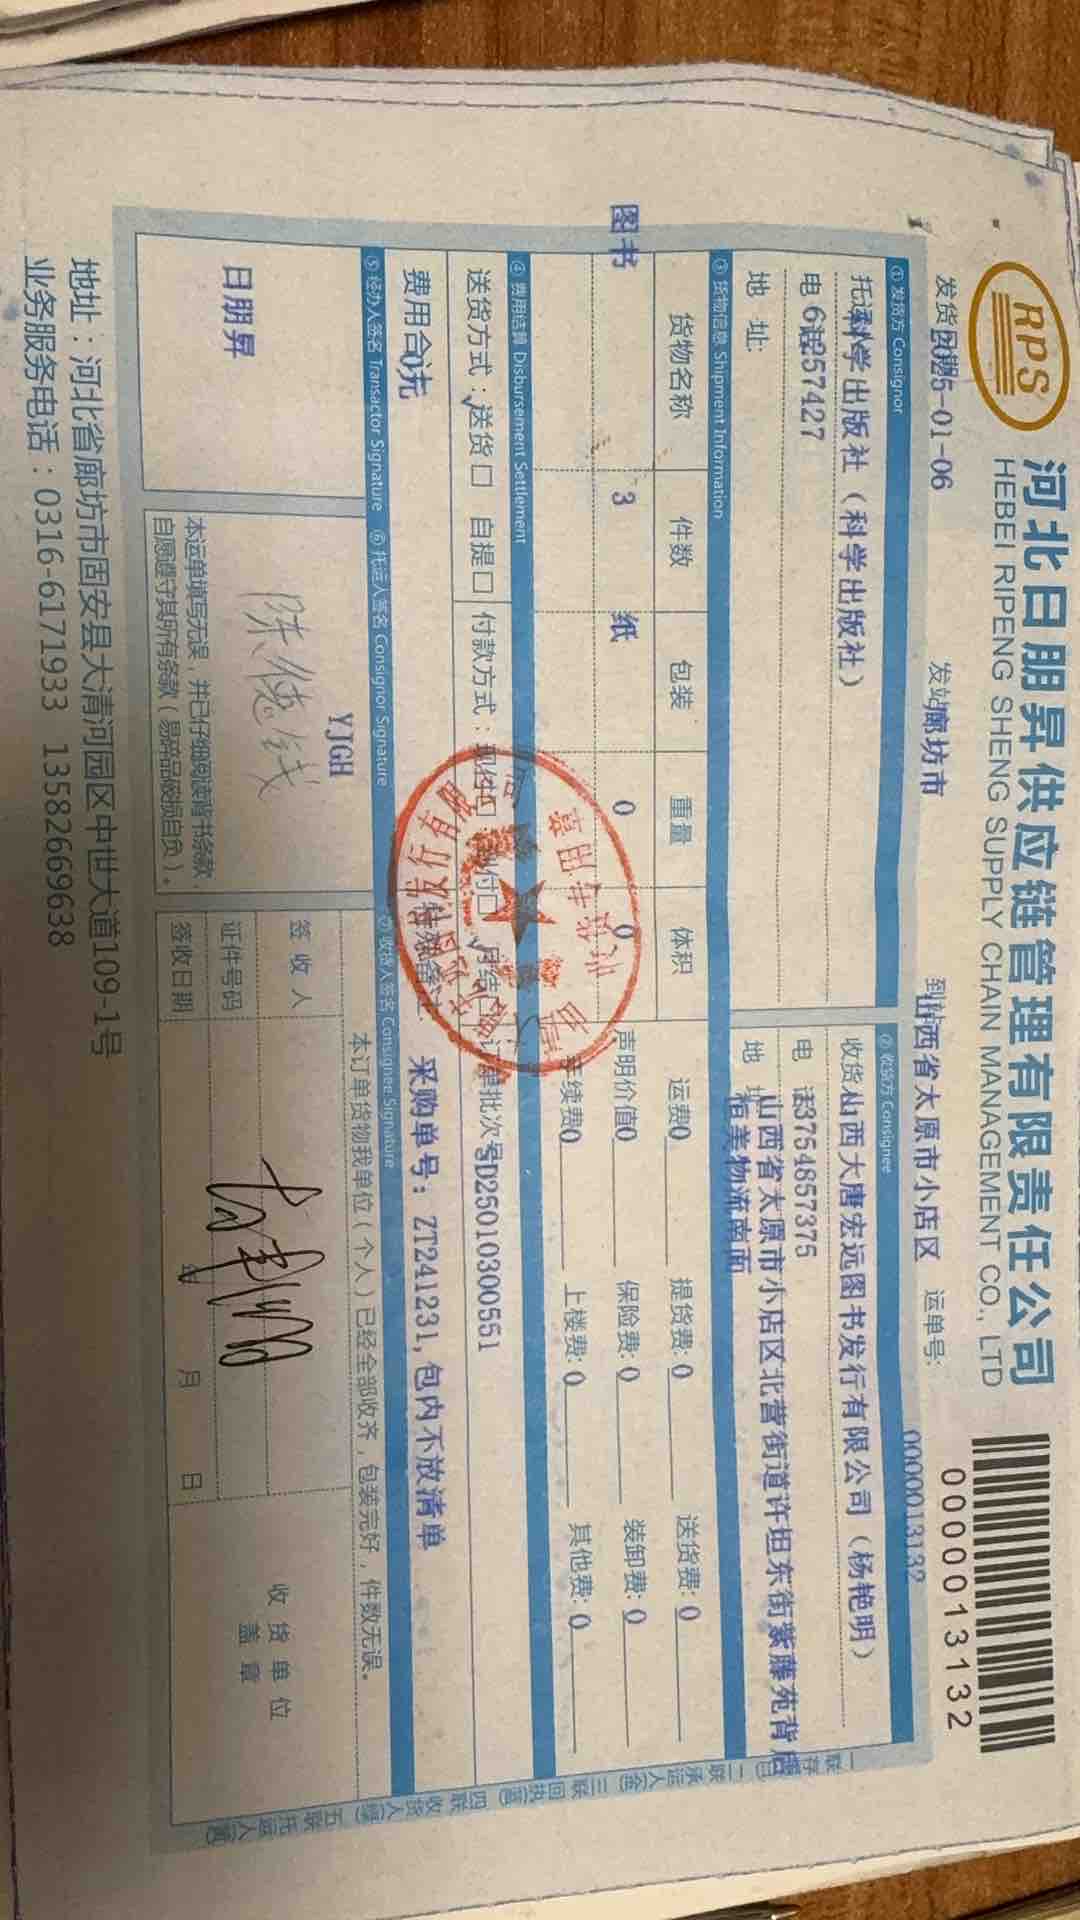 RPS
河北日朋昇供应链管理有限责任公司
HEBEI RIPENG SHENG SUPPLY CHAIN MANAGEMENT CO., LTD
0000013132
发货日期2025-01-06 发站廊坊市 到站山西省太原市小店区 运单号: 0000013132
① 发货方 Consignor
② 收货方 Consignee
托运 科学出版社（科学出版社）
收货 山西大唐宏远图书发行有限公司（杨艳明）
电话 57427
电 话 13754857375
地 址:
地 址 山西省太原市小店区北营街道许坦东街紫藤苑背后
恒美物流南面
③ 货物信息 Shipment Information
货物名称 件数 包装 重量 体积
图书 3 纸 0 0
运费0 提货费: 0 送货费: 0
声明价值0 保险费: 0 装卸费: 0
手续费0 上楼费: 0 其他费: 0
④ 费用结算 Disbursement Settlement
送货方式：√送货□ 自提□ 付款方式：现付□ 到付□ √月结□ 订单批次号SD25010300551
费用合计0元
特别备注: 采购单号：ZT241231, 包内不放清单
⑤ 经办人签名 Transactor Signature
⑥ 托运人签名 Consignor Signature
⑦ 收货人签名 Consignee Signature
日朋昇
YJGH
本运单填写无误，并已仔细阅读背书条款，
自愿遵守其所有条款（易碎品破损自负）。
本订单货物我单位（个人）已经全部收齐，包装完好，件数无误。
签 收 人
证件号码
签收日期 年 月 日
收 货 单 位
盖 章
一联存根(白) 二联承运人(金) 三联回执(蓝) 四联收货人(绿) 五联托运人(黄)
地址：河北省廊坊市固安县大清河园区中世大道109-1号
业务服务电话：0316-6171933 13582669638